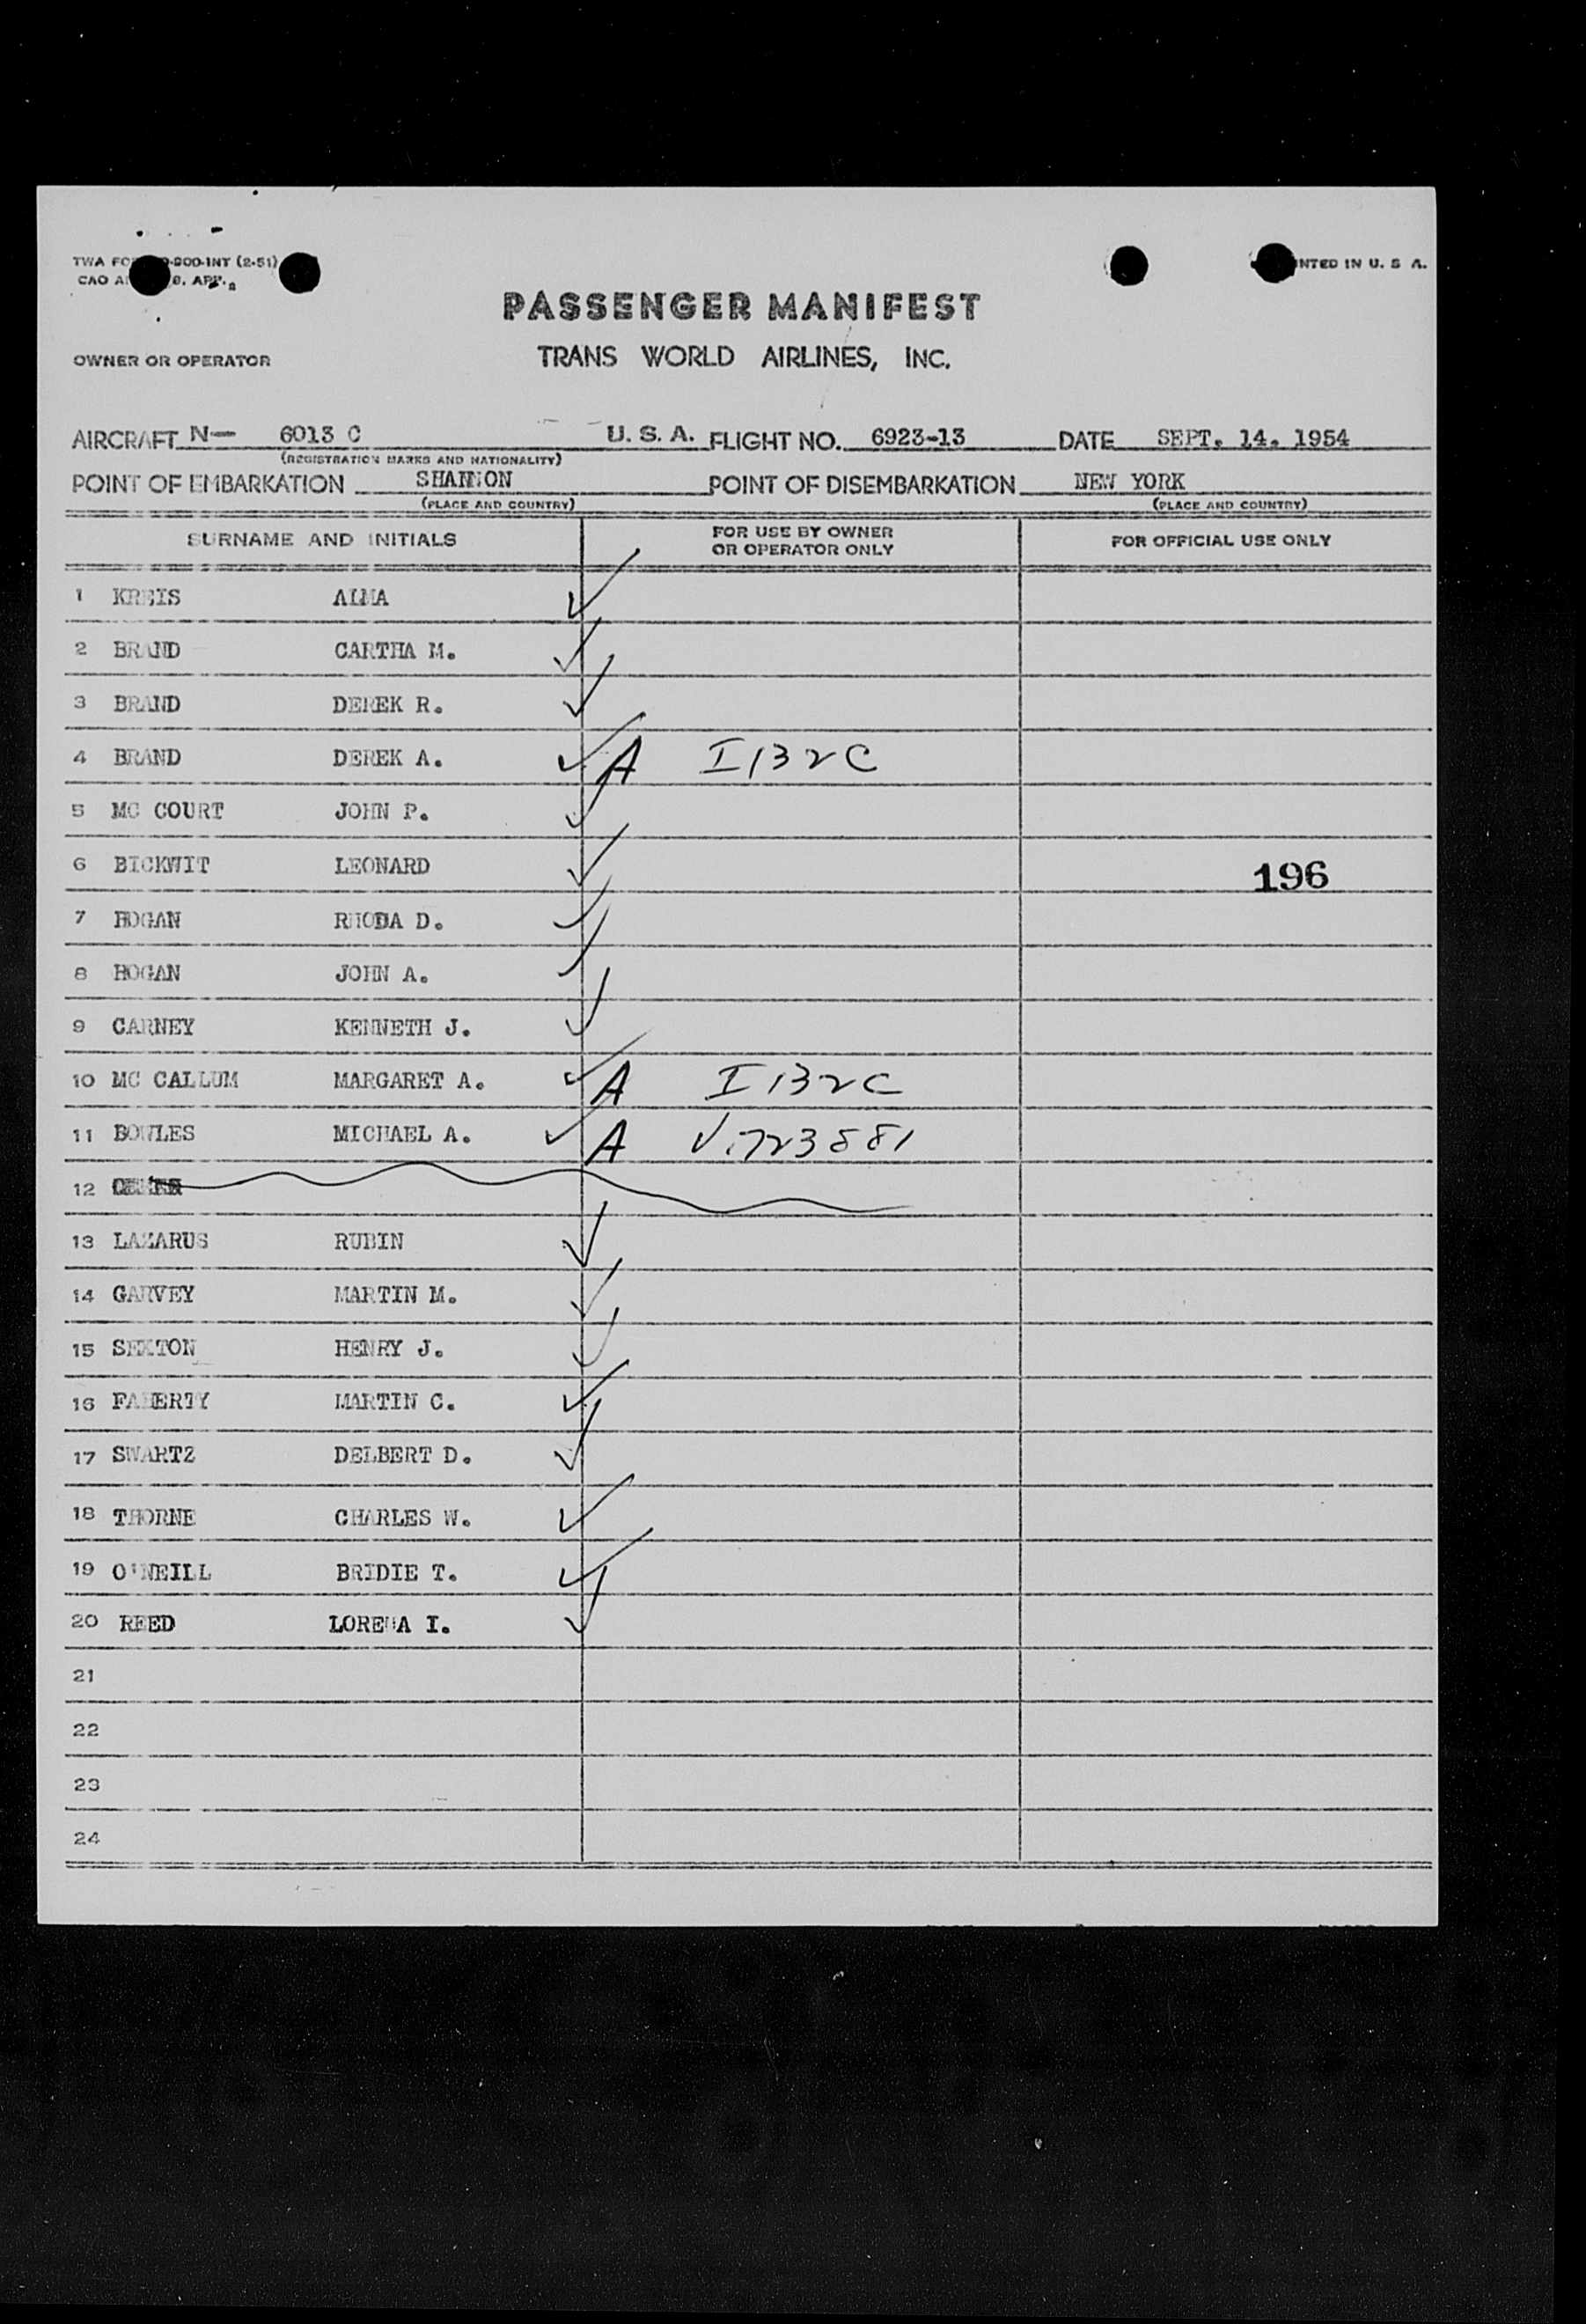 TWA 900-INT (2-51)
CAO
PRINTED IN U. S A.
PASSENGER MANIFEST
OWNER OR OPERATOR TRANS WORLD AIRLINES, INC.
AIRCRAFT N— 6013 C U. S. A. FLIGHT NO. 6923-13 DATE SEPT. 14. 1954
(REGISTRATION MARKS AND NATIONALITY)
POINT OF EMBARKATION SHANNON POINT OF DISEMBARKATION NEW YORK
(PLACE AND COUNTRY) (PLACE AND COUNTRY)
SURNAME AND INITIALS FOR USE BY OWNER OR OPERATOR ONLY FOR OFFICIAL USE ONLY
1 KREIS ALMA
2 BRAND CARTHA M.
3 BRAND DEREK R.
4 BRAND DEREK A. A I132C
5 MC COURT JOHN P.
6 BICKWIT LEONARD 196
7 HOGAN RHODA D.
8 HOGAN JOHN A.
9 CARNEY KENNETH J.
10 MC CALLUM MARGARET A. A I132C
11 BOWLES MICHAEL A. A V.723881
12
13 LAZARUS RUBIN
14 GARVEY MARTIN M.
15 SEXTON HENRY J.
16 FAHERTY MARTIN C.
17 SWARTZ DELBERT D.
18 THORNE CHARLES W.
19 O'NEILL BRIDIE T.
20 REED LORENA I.
21
22
23
24